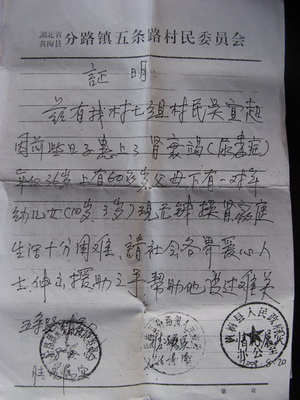 湖北省
黄梅县 分路镇五条路村民委员会
証明
兹有我村七组村民吴宜超
因前些日子患上了肾衰竭(尿毒症)
年仅36岁,上有60多岁父母下有一对年
幼儿女(10岁、3岁)现无钱换肾家庭
生活十分困难、請社会各界爱心人
士,伸出援助之手帮助他渡过难关
五条路村委会
黄梅县人民政府
办公室
2008.8.20
情况属实